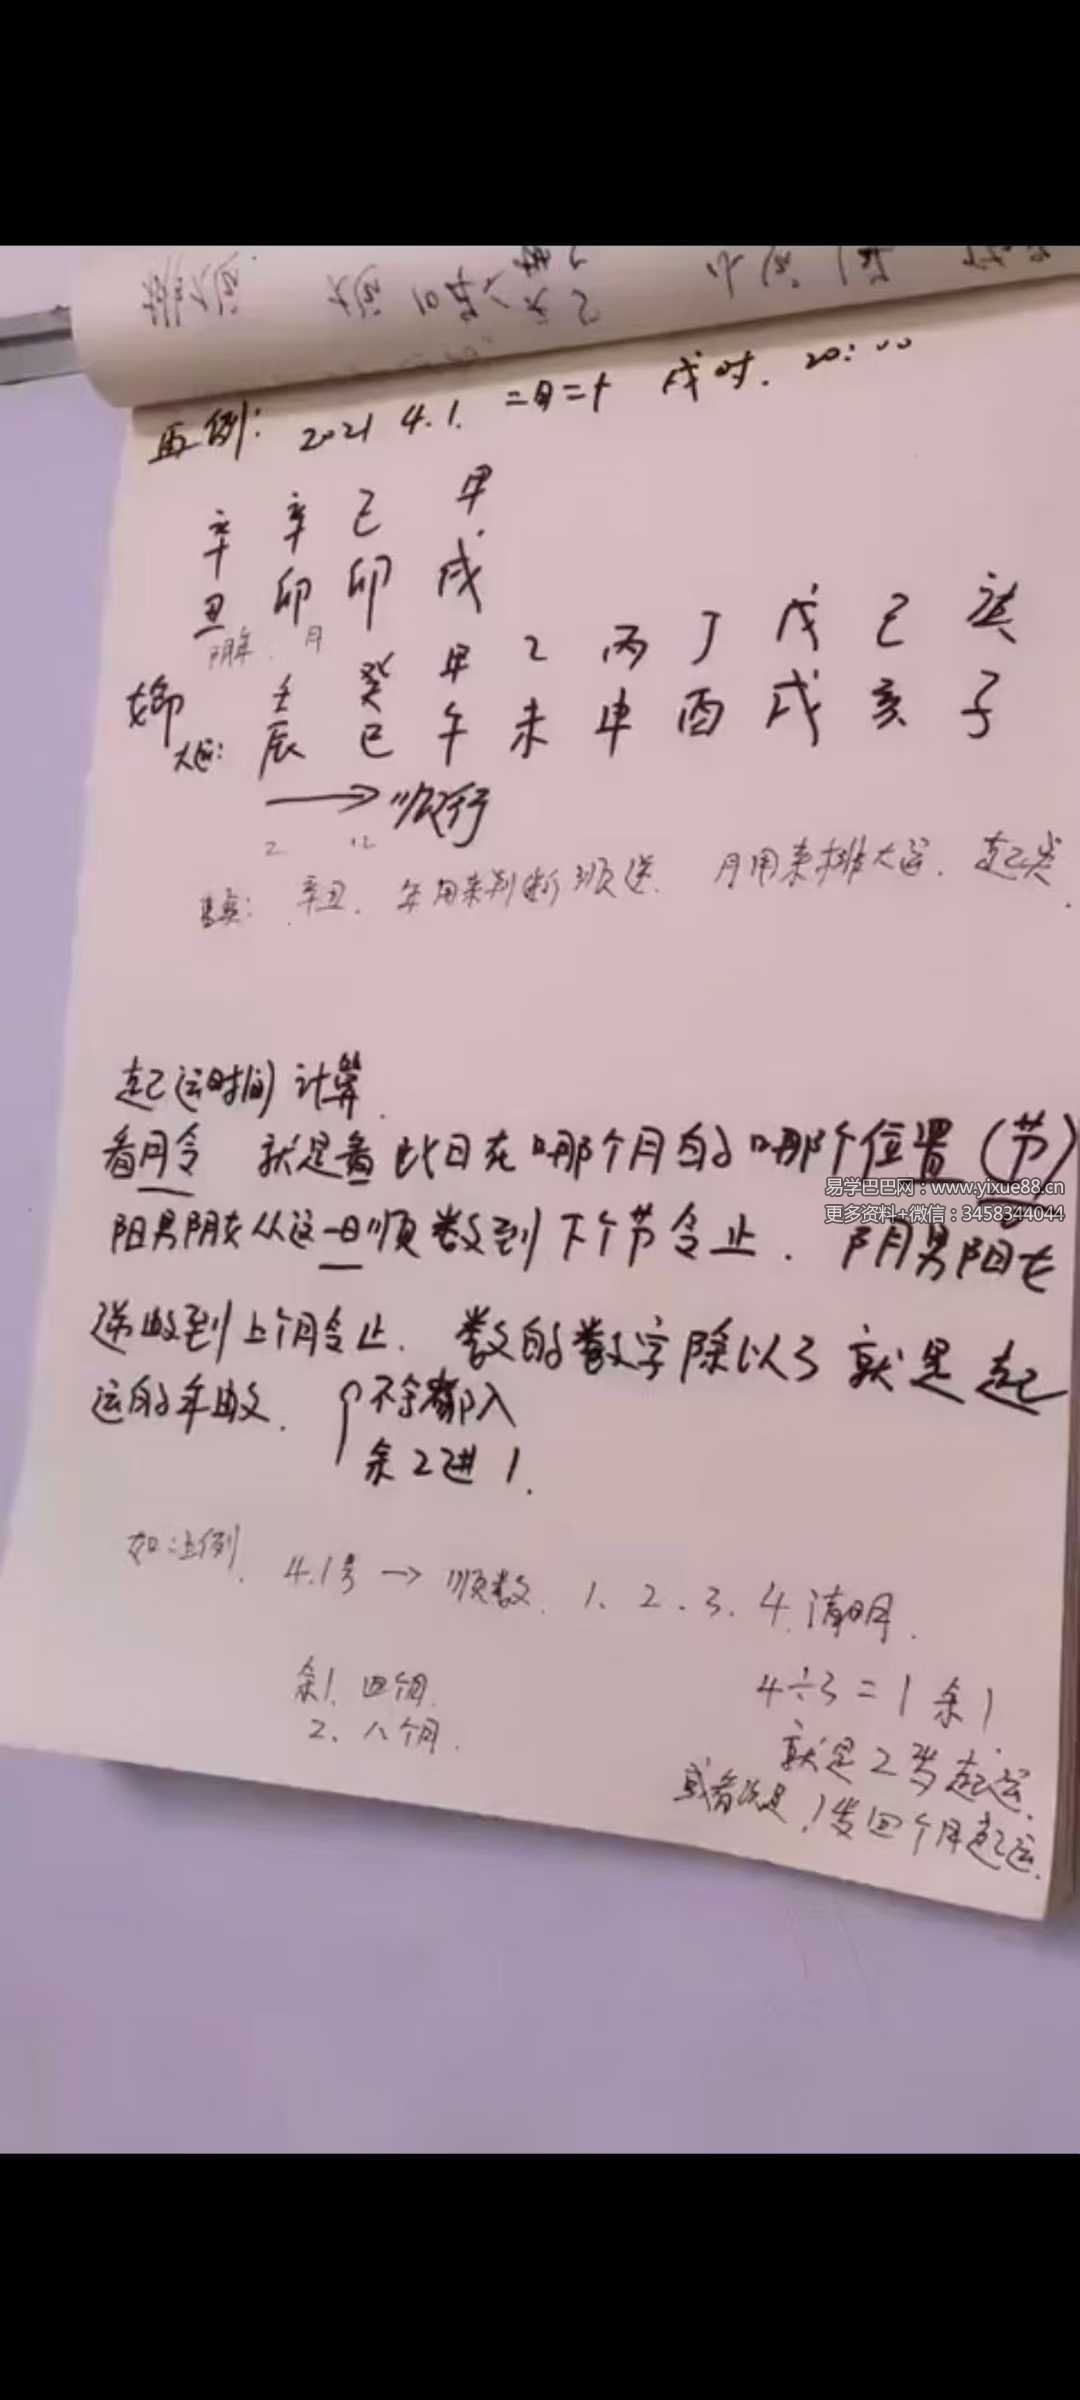 再例: 2021 4.1. 二月二十 戌时. 20:00
辛 辛 己 甲
丑 卯 卯 戌
阴年. 月
女命
大运:
壬 癸 甲 乙 丙 丁 戊 己 庚
辰 巳 午 未 申 酉 戌 亥 子
→ 顺行
2 12
辛丑. 年用来判断顺逆. 月用来排大运. 起运岁.
起运时间计算.
看月令 就是看此日在哪个月的哪个位置(节)
易学巴巴网:www.yixue88.cn
更多资料+微信:3458344044
阳男阴女从这一日顺数到下个节令止. 阴男阳女
逆数到上个月令止. 数的数字除以3就是起
运的年数. 不余都入
余2进1.
如上例. 4.1号 → 顺数. 1、2、3、4.清明.
余1、四个月.
2、八个月.
4÷3=1余1
就是2岁起运.
或者说是1岁四个月起运.